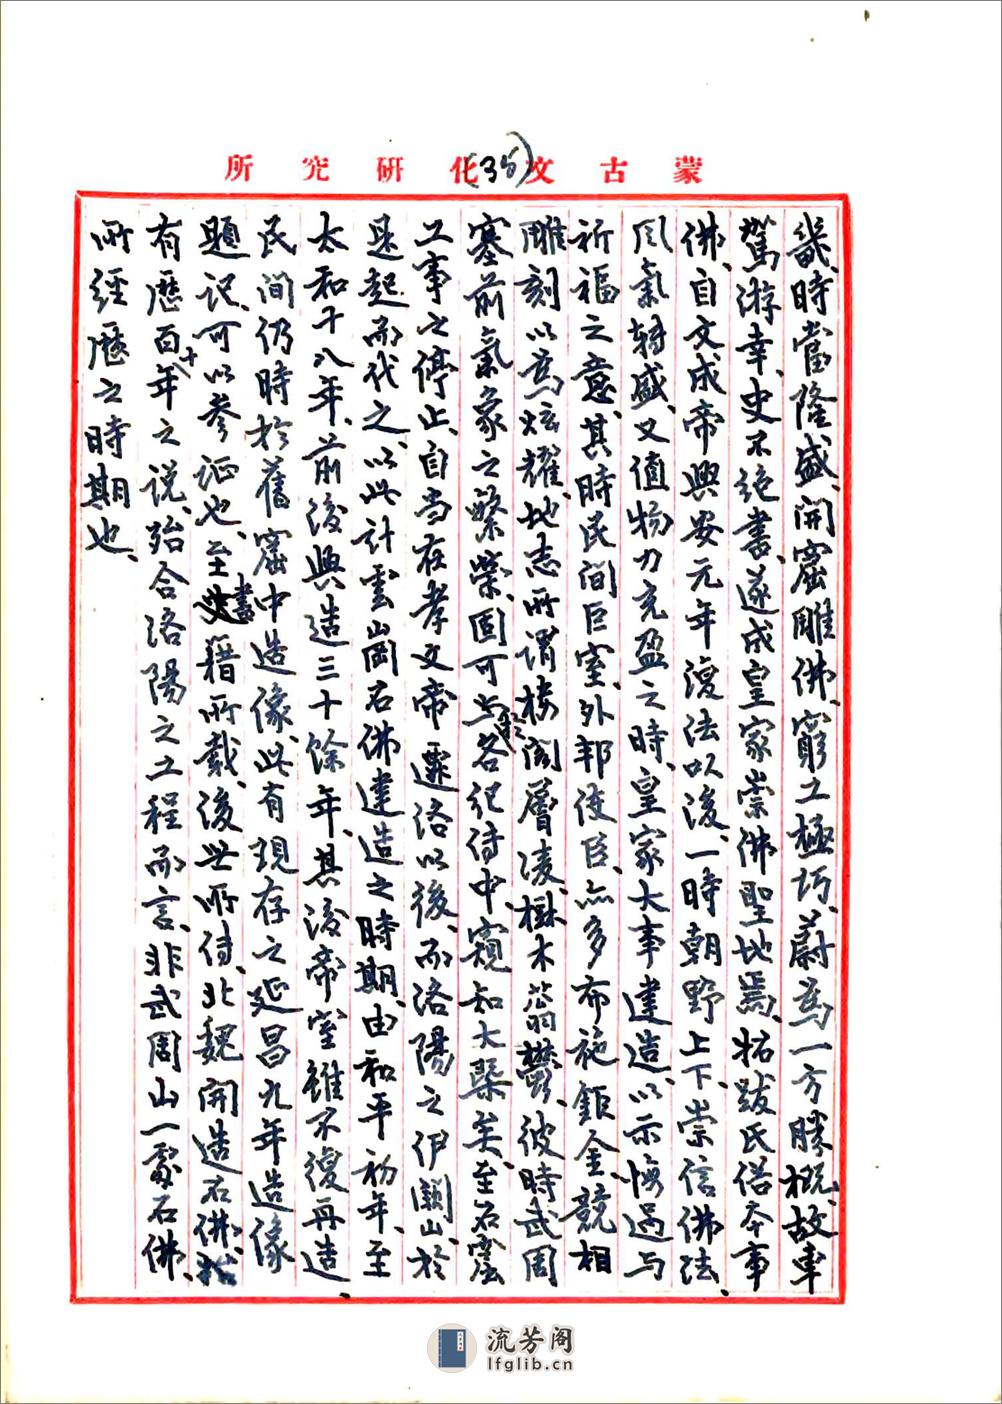 蒙古文化研究所
(35)
畿、時當隆盛、開窟雕佛、窮工極巧、蔚為一方勝概、故車
駕游幸、史不絕書、遂成皇家崇佛聖地焉、拓跋氏偣夲事
佛、自文成帝興安元年復法以後、一時朝野上下、崇信佛法、
風氣轉盛、又值物力充盈之時、皇家大事建造、以示悔過与
祈福之意、其時民间巨室、外邦使臣、亦多布施鉅金、競相
雕刻以為炫耀、地志所謂楼阁層凌、樹木蓊欝、彼時武周
塞前氣象之繁榮、固可於各纪传中、窺知大槩矣、至石窟
工事之停止、自当在孝文帝遷洛以後、而洛陽之伊闕山、於
是起而代之、以此計雲崗石佛建造之時期、由和平初年、至
太和十八年、前後興造三十餘年、其後帝室雖不復再造、
民间仍時於舊窟中造像、此有現存之延昌九年造像
題记、可以参証也、至書籍所載、後世所传、北魏開造石佛、
有歷百十年之说、殆合洛陽之工程而言、非武周山一處石佛、
所經歷之時期也、
流芳阁
lfglib.cn